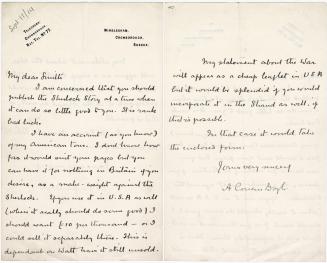 Sept 11/14
TELEGRAMS,
CROWBOROUGH.
NAT. TEL. Nº 77.
WINDLESHAM,
CROWBOROUGH,
SUSSEX.
My dear Smith
I am concerned that you should
publish the Sherlock Story at a time when
it can do so little good to you. It is rank
bad luck.
I have an account (as you know)
of my American time. I dont know how
far it would suit your pages but you
can have it for nothing in Britain if you
desire, as a make-weight against the
Sherlock. If you use it in U.S.A as well
(where it really should do some good) I
should want £10 per thousand - or I
could sell it separately there. This is
dependent on Watt having it still unsold.
My statement about the War
will appear as a cheap leaflet in USA
but it would be splendid if you would
incorporate it in the Strand as well, if
this is possible.
In that case it would take
the enclosed form.
Yours very sincerely
A Conan Doyle